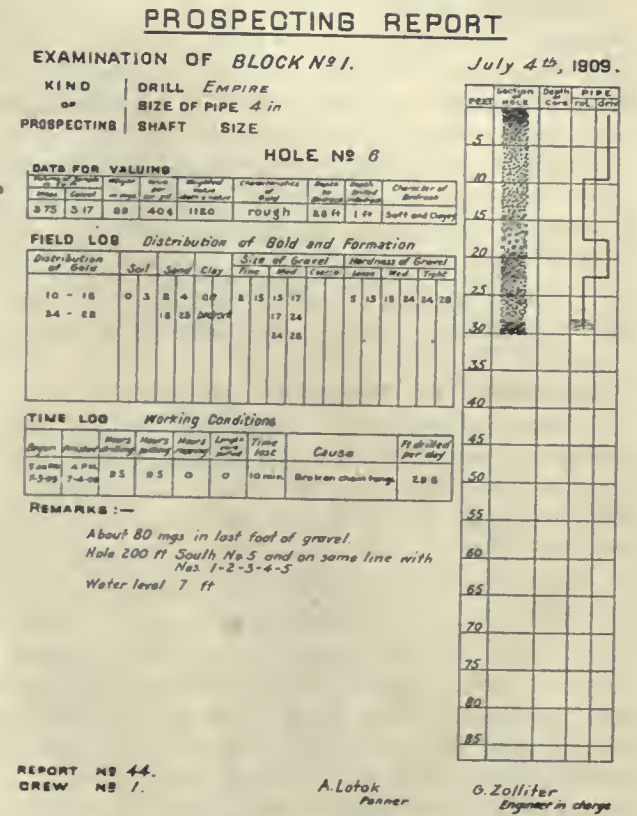 PROSPECTING REPORT
EXAMINATION OF BLOCK Nº 1.
July 4th, 1909.
KIND OF PROSPECTING
DRILL EMPIRE
SIZE OF PIPE 4 in
SHAFT SIZE
HOLE Nº 6
DATA FOR VALUING
Weight
Characteristics of Gold
Depth to Bedrock
Character of Bedrock
3.75 3.17 89 40¢ 1120 rough 28 ft 1 ft Soft and Clayey
FIELD LOG Distribution of Gold and Formation
Distribution of Gold Soil Sand Clay Size of Gravel Hardness of Gravel
Fine Med Coarse Loose Med. Tight
10 - 18 0 3 8 15 15 17 5 15 18 24 24 28
24 - 28 18 23 bedrock 17 24
24 28
TIME LOG Working Conditions
Began Finished Hours drilling Hours pulling Hours moving Time lost Cause Ft drilled per day
7-3-09 7-4-09 9.5 0.5 0 0 10 min. Broken chain tongs 29.6
REMARKS :—
About 80 mgs in last foot of gravel.
Hole 200 ft South No 5 and on same line with
Nos. 1-2-3-4-5
Water level 7 ft
FEET Section of HOLE Depth of Core PIPE
rot. driv.
5
10
15
20
25
30
35
40
45
50
55
60
65
70
75
80
85
REPORT Nº 44.
CREW Nº 1.
A. Lotok
Panner
G. Zolliter
Engineer in charge